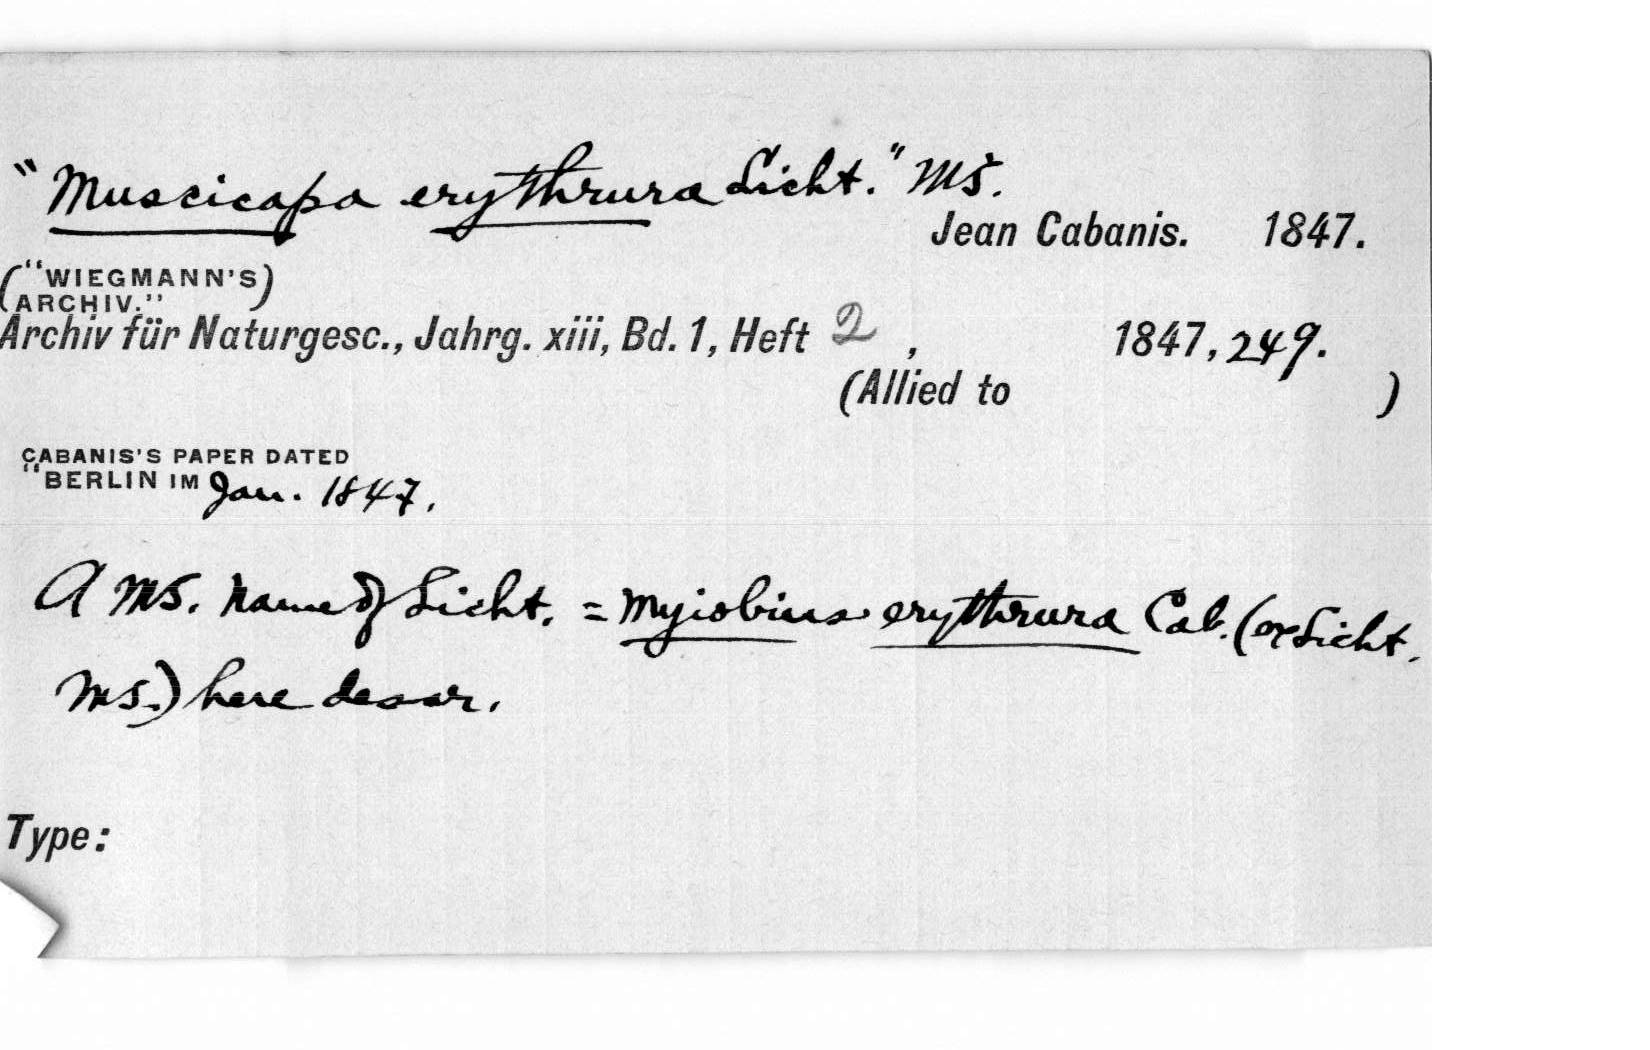 "Muscicapa erythrura Licht." MS.
Jean Cabanis. 1847.
("WIEGMANN'S)
(ARCHIV."
Archiv für Naturgesc., Jahrg. xiii, Bd. 1, Heft 2 , 1847, 249.
(Allied to )
CABANIS'S PAPER DATED
"BERLIN IM Jan. 1847.
A MS. name of Licht. = Myiobius erythrura Cab. (ex Licht.
MS.) here descr.
Type: